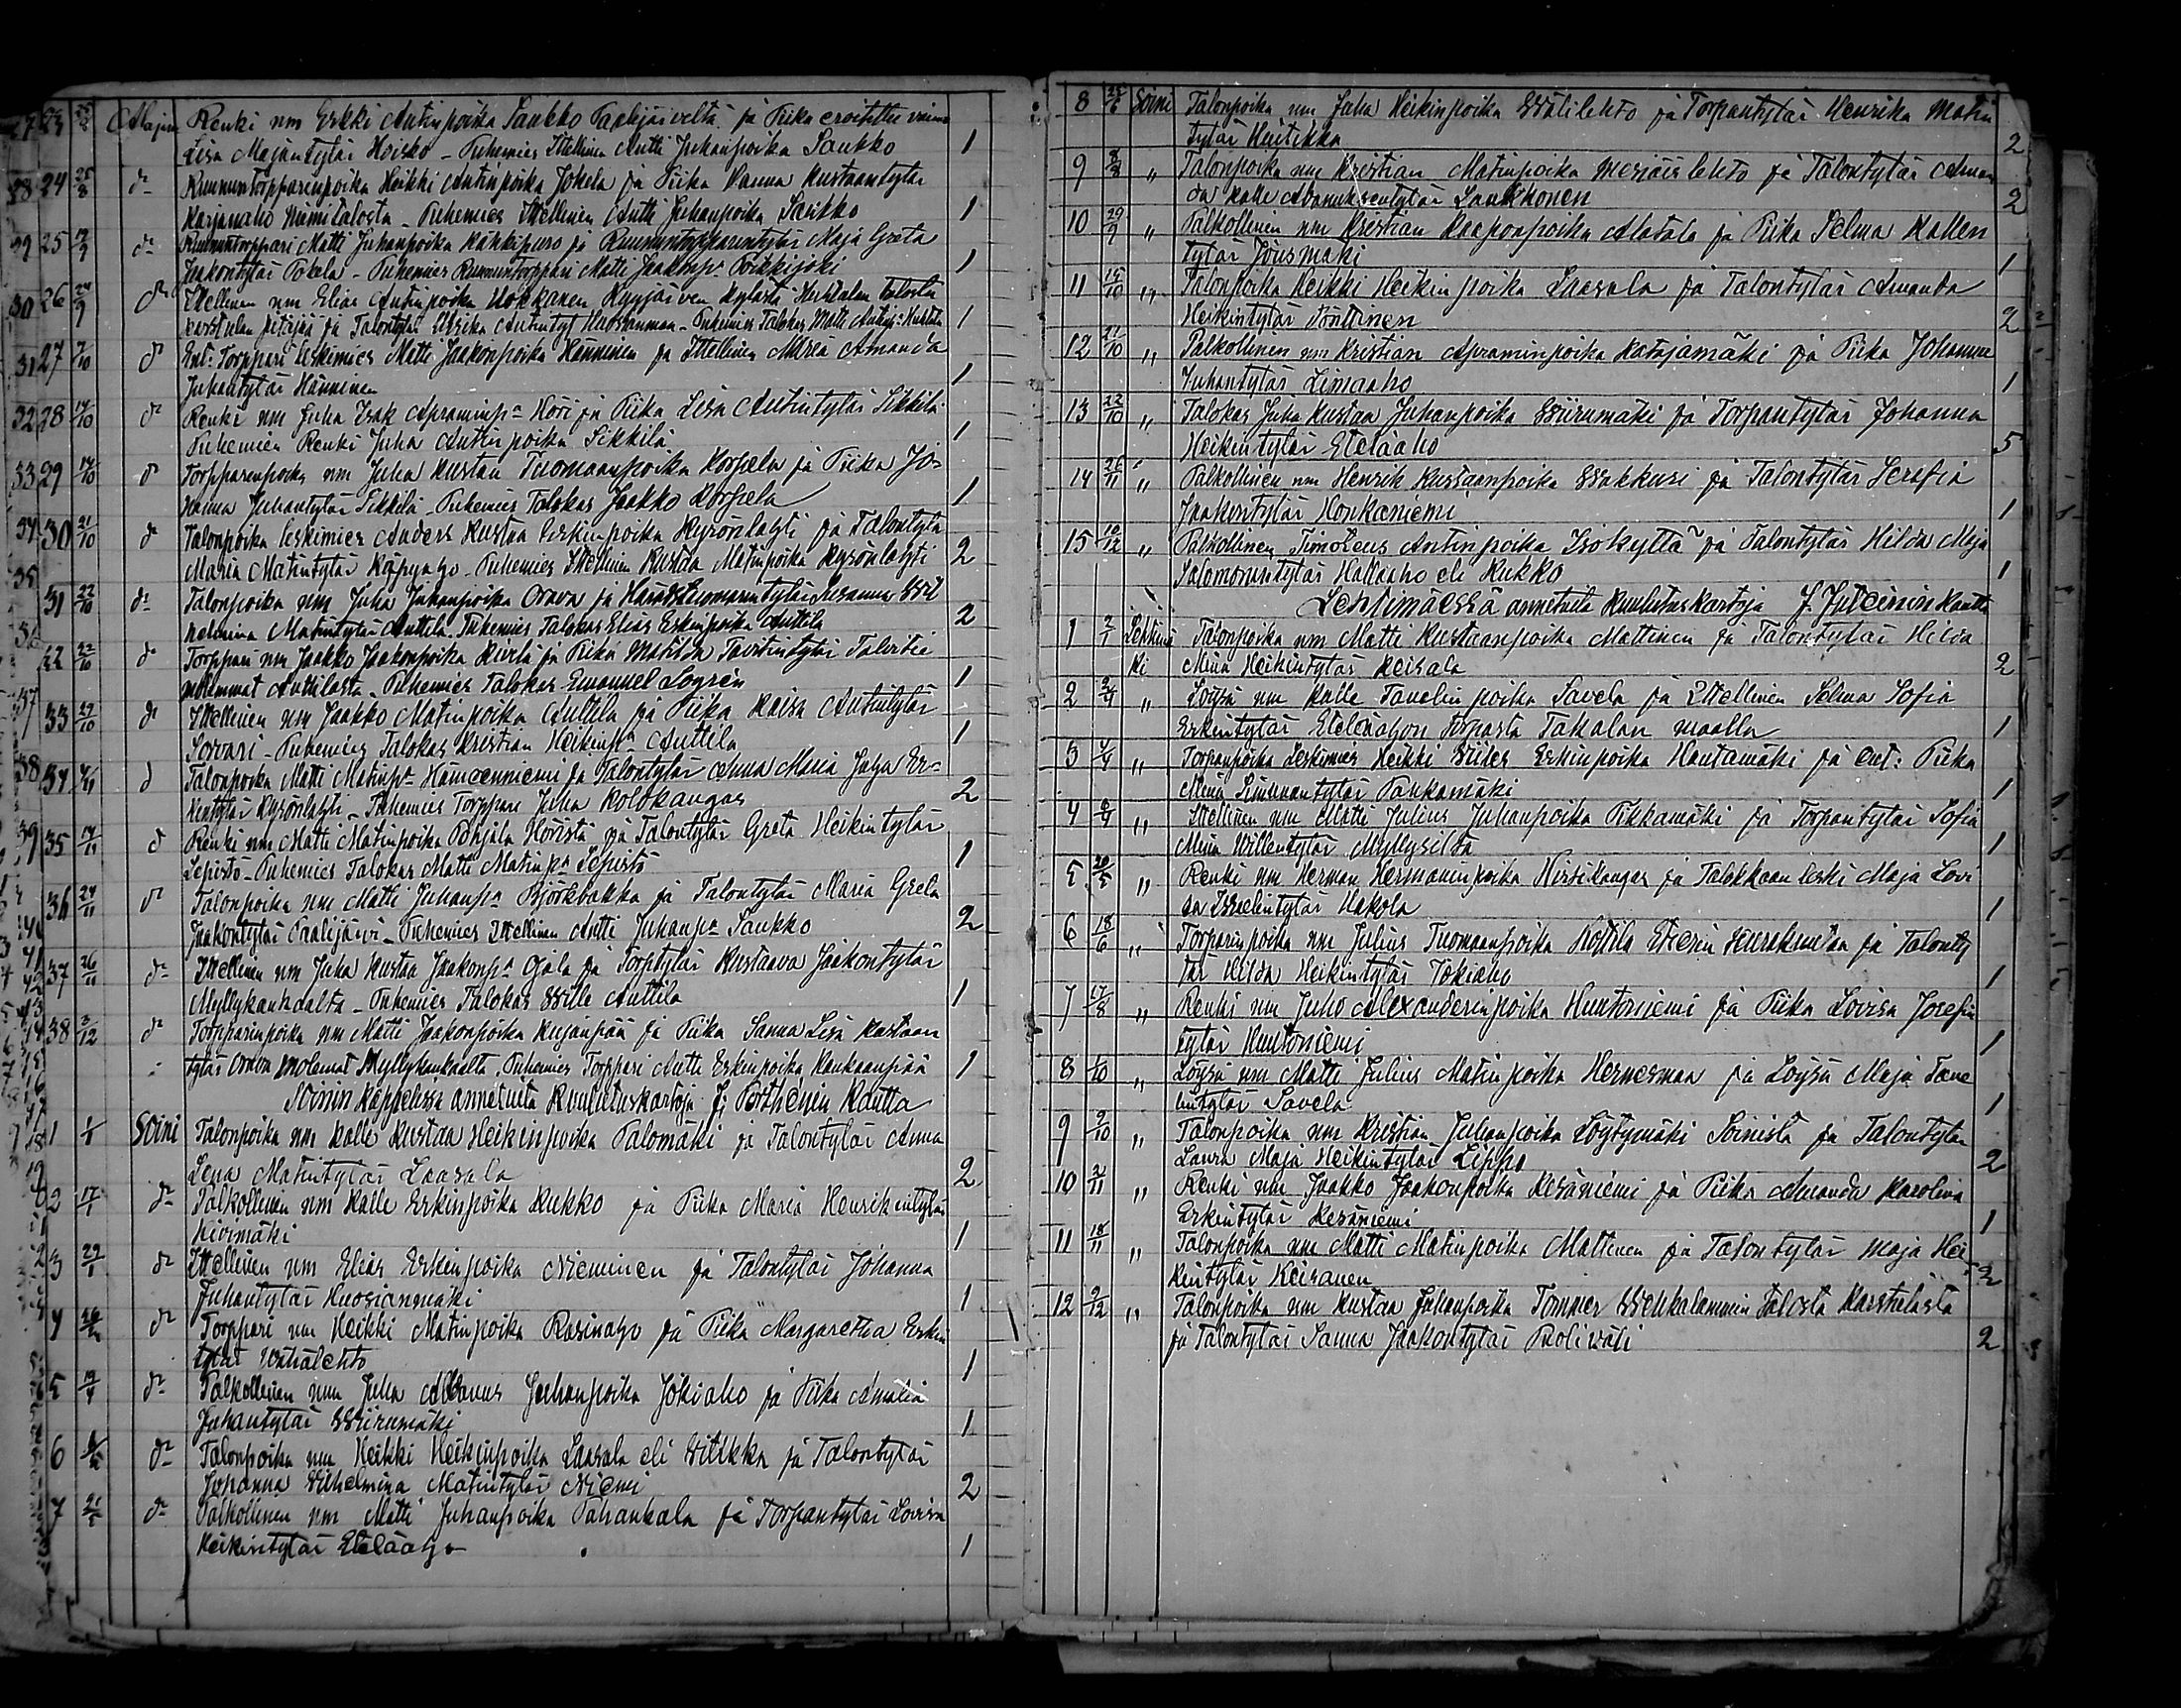 23 Alajärvi Renki nm Erkki Antinpoika Saukko Paalijärveltä ja Piika eroitettu vaimo
Lisa Majantytär Hoisko - Puhemies Ittellinen Antti Juhanpoika Saukko 1
28 24 25/8 do Ruununtorpparinpoika Heikki Antinpoika Jokela ja Piika Sanna Kustaantytär
Karjanaho Niemitalosta - Puhemies Ittellinen Antti Juhanpoika Saukko 1
29 25 do Ruununtorppari Matti Juhanpoika Kähkipuro ja Ruununtorpparintytär Maja Greta
Jaakontytär Tokela - Puhemies Ruununtorppari Matti Jaakonp:a Poikkijoki 1
30 26 24/9 do Ittellinen nm Elias Antinpoika Hokkanen Kyyjärven kylästä talosta
Karstulan pitäjää ja Talontytär Ulrika Antintyt - Puhemies Talokas Matti 1
31 27 7/10 do Ent: Torppari leskimies Matti Jaakonpoika Hänninen ja Ittellinen Maria Amanda
Juhantytär Hänninen 1
32 28 14/10 do Renki nm Juha Isak Apraminp:a Höri ja Piika Lisa Antintytär Sikkilä
Puhemies Renki Juha Antinpoika Sikkilä 1
33 29 14/10 do Torpparinpoika nm Juha Kustaa Tuomaanpoika Korpela ja Piika Jo=
hanna Juhantytär Sikkilä - Puhemies Talokas Jaakko Korpela 1
34 30 21/10 do Talonpoika leskimies Anders Kustaa Erkinpoika Kyrönlahti ja Talontytär
Maria Matintytär Käpynaho - Puhemies Ittellinen Kustaa Matinpoika Kyrönlahti 2
35 31 22/10 do Talonpoika nm Juha Juhanpoika Orava ja Susanna Wil
helmina Matintytär Anttila. Puhemies Talokas Elias Erkinpoika Anttila 2
36 32 22/10 do Torppari nm Jaakko Jaakonpoika Kivelä ja Piika Matilda Taavitintytär Talvitie
molemmat Anttilasta - Puhemies Talokas Emanuel Logrén 1
37 33 29/10 do Ittellinen nm Jaakko Matinpoika Anttila ja Piika Kaisa Antintytär
Sorvari - Puhemies Talokas Kristian Heikinp:a Anttila 1
38 34 do Talonpoika Matti Matinp:a Hämeenniemi ja Talontytär Anna Maria Er=
kintytär Kyrönlahti - Puhemies Torppari Juha Kolokangas 2
39 35 14/11 do Renki nm Matti Matinpoika Pohjala Höristä ja Talontytär Greta Heikintytär
Lepistö - Puhemies Talokas Matti Matinp:a Lepistö 1
36 24/11 do Talonpoika nm Matti Juhanp:a Björkbakka ja Talontytär Maria Greta
Jaakontytär Paalijärvi - Puhemies Ittellinen Antti Juhanp:a Saukko 2
37 26/11 do Ittellinen nm Juha Kustaa Jaakonp:a Ojala ja Torptytär Kustaava Jaakontytär
Myllykankaalta - Puhemies Talokas Wille Anttila 1
38 3/12 do Torpparinpoika nm Matti Jaakonpoika Kujanpää ja Piika Sanna Lisa Kustaan
tytär Orava molemat Myllykankaalta. Puhemies Torppari Antti Erkinpoika Kaukaanpää 1
Soinin Kappelissa annetuita Kuulutuskartoja J. Porthénin Kautta
1 Soini Talonpoika nm Kalle Kustaa Heikinpoika Palomäki ja Talontytär Anna
Lena Matintytär Laasala 2
2 17/1 do Palkollinen nm Kalle Erkinpoika Kukko ja Piika Maria Henrikintytär
Kivimäki 1
3 29/1 do Ittellinen nm Elias Erkinpoika Nieminen ja Talontytär Johanna
Juhantytär Huosianmäki 1
4 do Torppari nm Heikki Matinpoika Rasinaho ja Piika Margaretha Erkin
tytär Wälilehto 1
5 19/4 do Palkollinen nm Juha Albanus Juhanpoika Jokiaho ja Piika Amalia
Juhantytär Wiirumäki 1
6 do Talonpoika nm Heikki Heikinpoika Laasala eli Witikka ja Talontytär
Johanna Wilhelmina Matintytär Niemi 2
7 do Palkollinen nm Matti Juhanpoika Pahankala ja Torpantytär Lovisa
Heikintytär Eteläaho 1
8 Soini Talonpoika nm Juha Heikinpoika Wälilehto ja Torpantytär Henrika Matin
tytär Huitikka 2
9 „ Talonpoika nm Kristian Matinpoika Mesiäislehto ja Talontytär Aman
da Kalle Abanuksentytär Laukkonen 2
10 29/9 „ Palkollinen nm Kristian Kaaponpoika Alatalo ja Piika Selma Kallen
tytär Jousmäki 1
11 15/10 „ Talonpoika Heikki Heikinpoika Laasala ja Talontytär Amanda
Heikintytär Pönttinen 2
12 21/10 „ Palkollinen nm Kristian Apraminpoika Katajamäki ja Piika Johanna
Juhantytär Limaaho 1
13 22/10 „ Talokas Juha Kustaa Juhanpoika Wiirumäki ja Torpantytär Johanna
Heikintytär Eteläaho 5
14 26/11 „ Palkollinen nm Henrik Kustaanpoika Wakkuri ja Talontytär Serafia
Jaakontytär Honkaniemi 1
15 10/12 „ Palkollinen Timoteus Antinpoika Isokyttä ja Talontytär Hilda Maja
Salomonintytär Hallaaho eli Kukko 1
Lehtimäessä annetuita Kuulutuskartoja J. Jyleinin Kautta
1 2/1 Lehtimä Talonpoika nm Matti Kustaanpoika Mattinen ja Talontytär Hilda
ki Miina Heikintytär Keisala 2
2 2/4 „ Loysä nm Kalle Taavelinpoika Savela ja Ittellinen Selma Sofia
Erkintytär Eteläahon torpasta Takalan maalla 1
3 4/4 „ Torpanpoika Leskimies Heikki Wiles Erkinpoika Hautamäki ja ent: Piika
Miina Simunantytär Pankamäki 1
4 „ Ittellinen nm Matti Julius Juhanpoika Pikkamäki ja Torpantytär Sofia
Miina Willentytär Myllysilta 1
5 20/5 „ Renki nm Herman Hermaninpoika Hirsikangas ja Talokkaan leski Maja Lovi
sa Israelintytär Hakola 1
6 18/6 „ Torparinpoika nm Julius Tuomaanpoika Kotila Etserin ja Talonty
tär Hilda Heikintytär Jokiaho 1
7 17/8 „ Renki nm Juho Alexanderinpoika Huntoniemi ja Piika Lovisa Josefin
tytär Huntoniemi 1
8 1/10 „ Loysä nm Matti Julius Matinpoika Hernesmaa ja Loysä Maja Taave
lintytär Savela 1
9 9/10 „ Talonpoika nm Kristian Juhanpoika Löytymäki Soinista ja Talontytär
Laura Maja Heikintytär Lippo 2
10 2/11 „ Renki nm Jaakko Jaakonpoika Kesäniemi ja Piika Amanda Karolina
Erkintytär Kesäniemi 1
11 18/11 „ Talonpoika nm Matti Matinpoika Mattinen ja Talontytär Maja Hei=
kintytär Keisanen 2
12 9/12 „ Talonpoika nm Kustaa Juhanpoika Tommer Wehkalammin talosta Karstulasta
ja Talontytär Sanna Jaakontytär Poliwäti 2